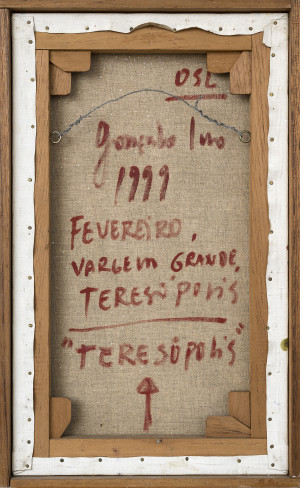 OSL
Gonçalo Ivo
1999
FEVEREIRO,
VARGEM GRANDE,
TERESÓPOLIS
"TERESÓPOLIS"